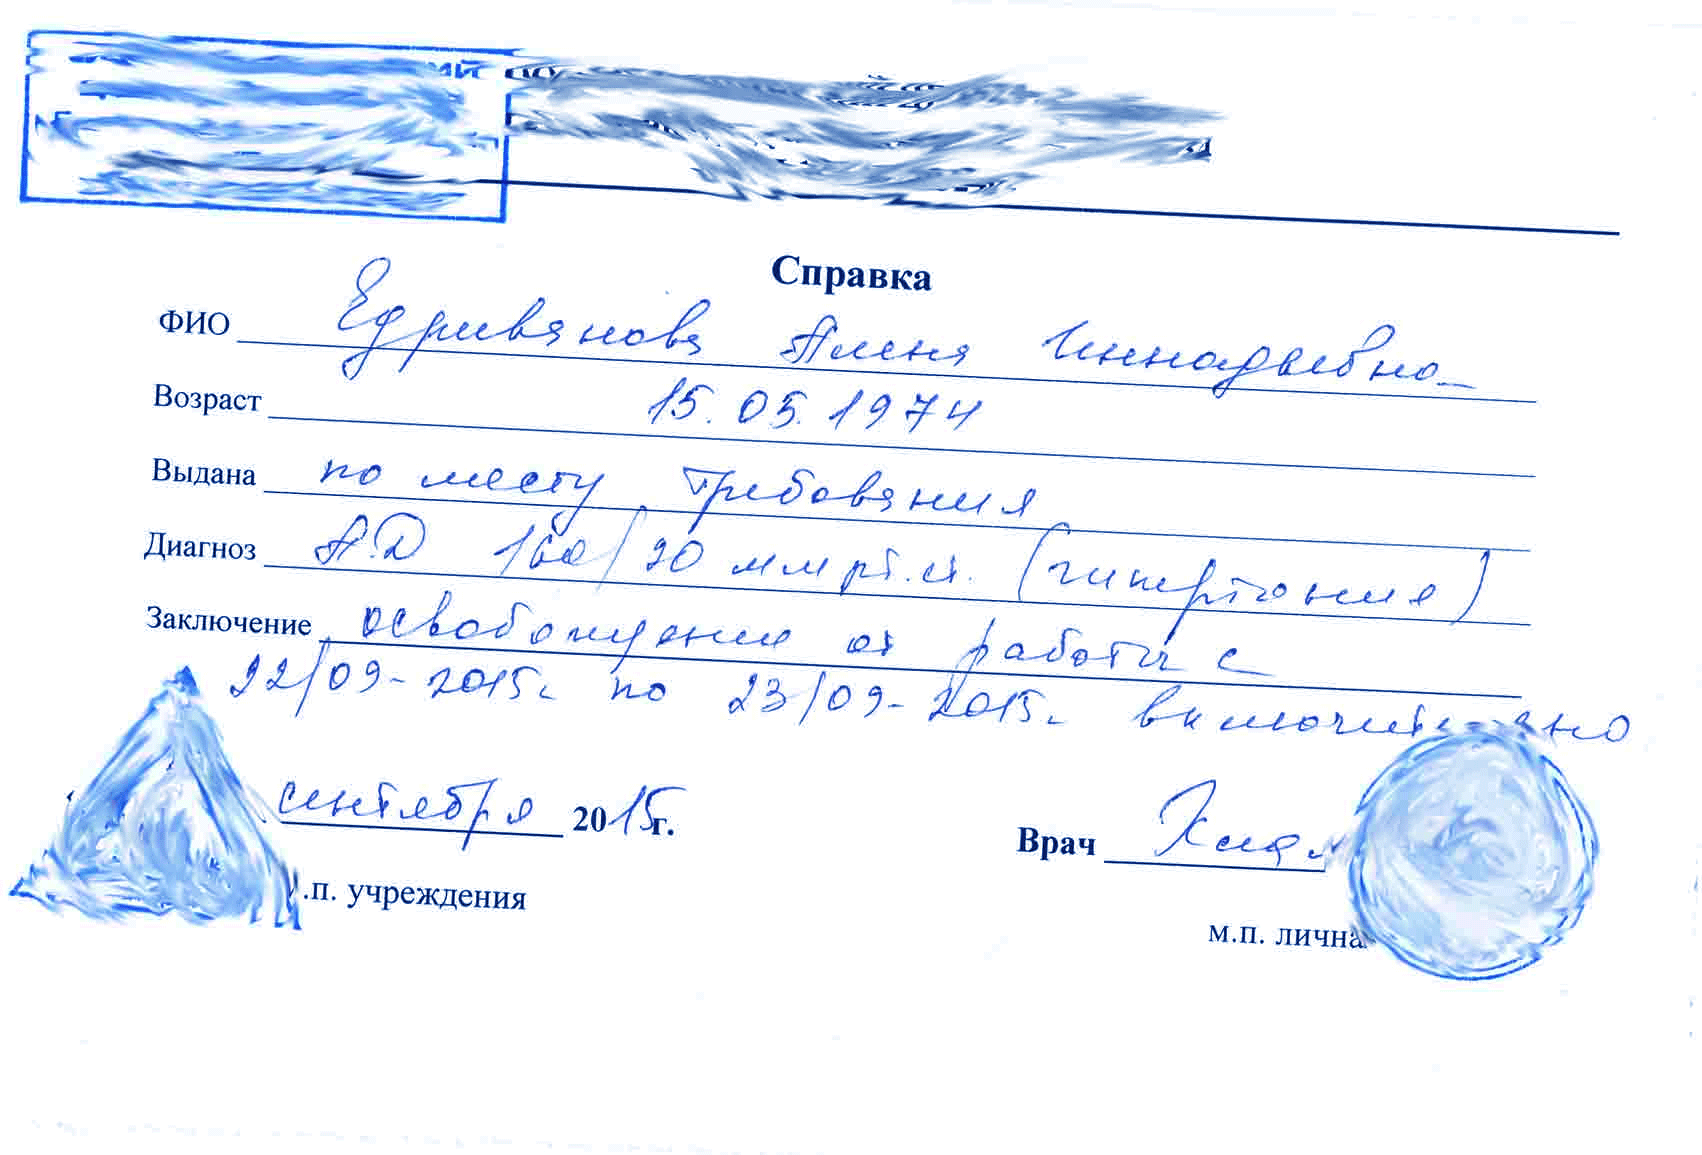 Справка
ФИО Едривянова Алена Геннадьевна
Возраст 15.05.1974
Выдана по месту требования
Диагноз А.Д 160/90 мм рт.ст. (гипертония)
Заключение освобождение от работы с
22/09-2015г по 23/09-2015г включительно
сентября 2015г. Врач
.п. учреждения
м.п. лична